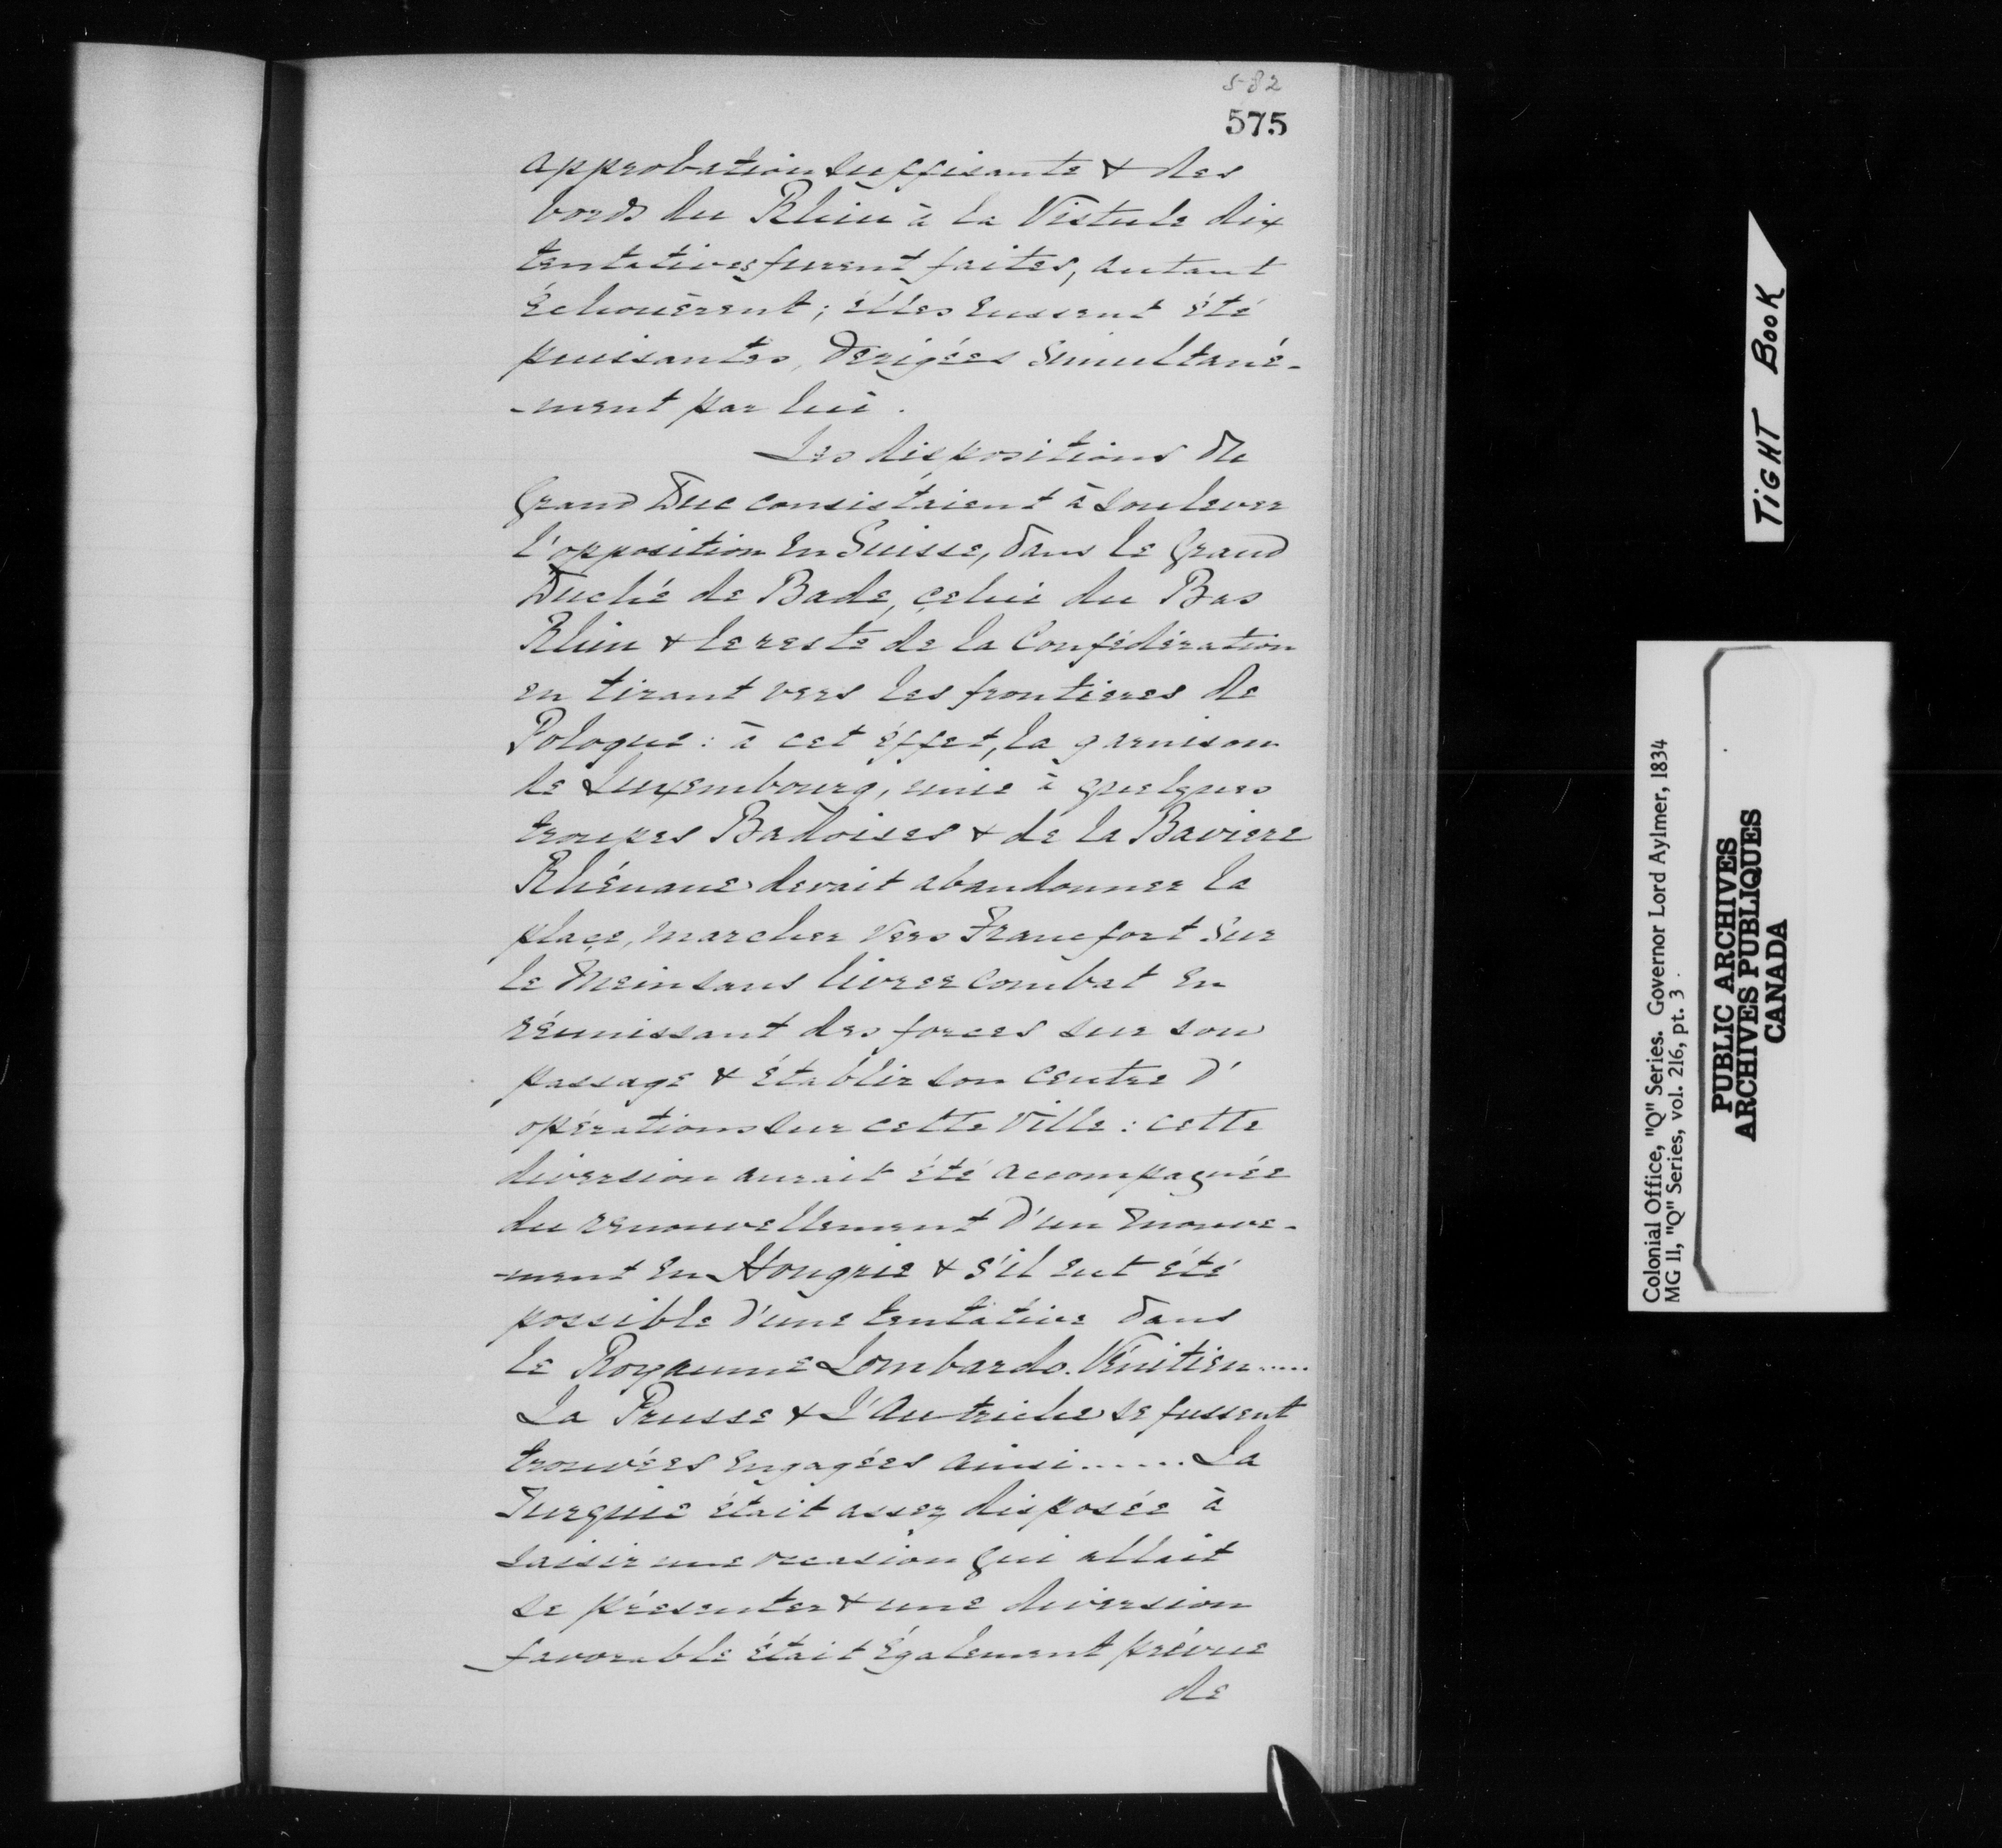 582
575
approbation suffisante & des
bords du Rhin à la Vistule dix
tentatives furent faites, autant
échouèrent ; élles eussent été
puissantes, dirigées simultané-
-ment par lui.
Les dispositions de
Grand Duc consistaient à soulever
l'opposition en Suisse, dans le Grand
Duché de Bade, celui du Bas
Rhin & le reste de la Confédération
en tirant vers les frontieres de
Pologne : à cet éffet, la garnison
de Luxembourg, unie à quelques
troupes Badoises & de la Baviere
Rhénane devait abandonner la
place, marcher vers Francfort sur
le Mein sans livrer combat en
réunissant des forces sur son
passage & établir son centre d'
opérations sur cette ville : cette
diversion aurait été accompagnée
du renouvellement d'un mouve-
-ment en Hongrie & s'il eut été
possible d'une tentative dans
le Royaume Lombardo. Vénitien.....
La Prusse & L'Autriche se fussent
trouvées engagées ainsi...... La
Turquie était assez disposée à
saisir une occasion qui allait
se présenter & une diversion
favorable était également prévue
de
TIGHT BOOK
Colonial Office, "Q" Series. Governor Lord Aylmer, 1834
MG 11, "Q" Series, vol. 216, pt. 3
PUBLIC ARCHIVES
ARCHIVES PUBLIQUES
CANADA